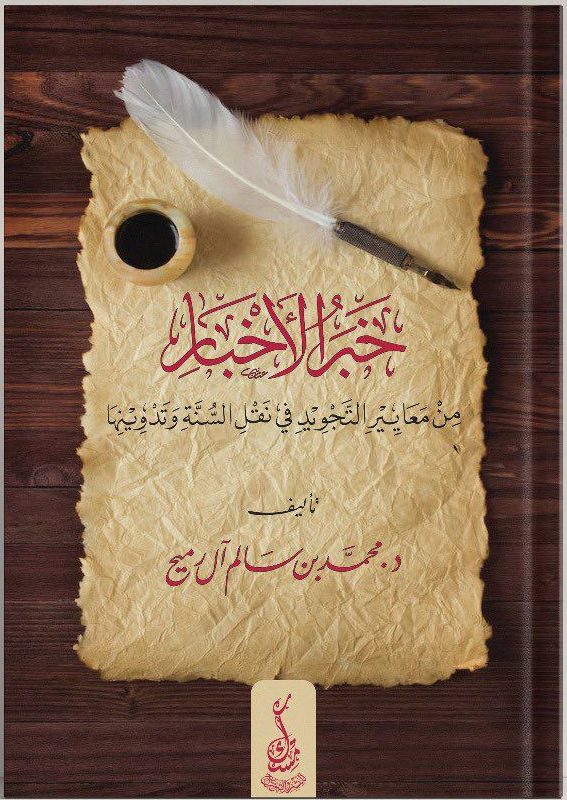 خَبَرُ الأَخْبَارِ
مِنْ مَعَايِيْرِ التَّجْوِيْدِ فِي نَقْلِ السُّنَّةِ وَتَدْوِيْنِهَا
تأليف
د. محمَّد بن سَالم آل رميح